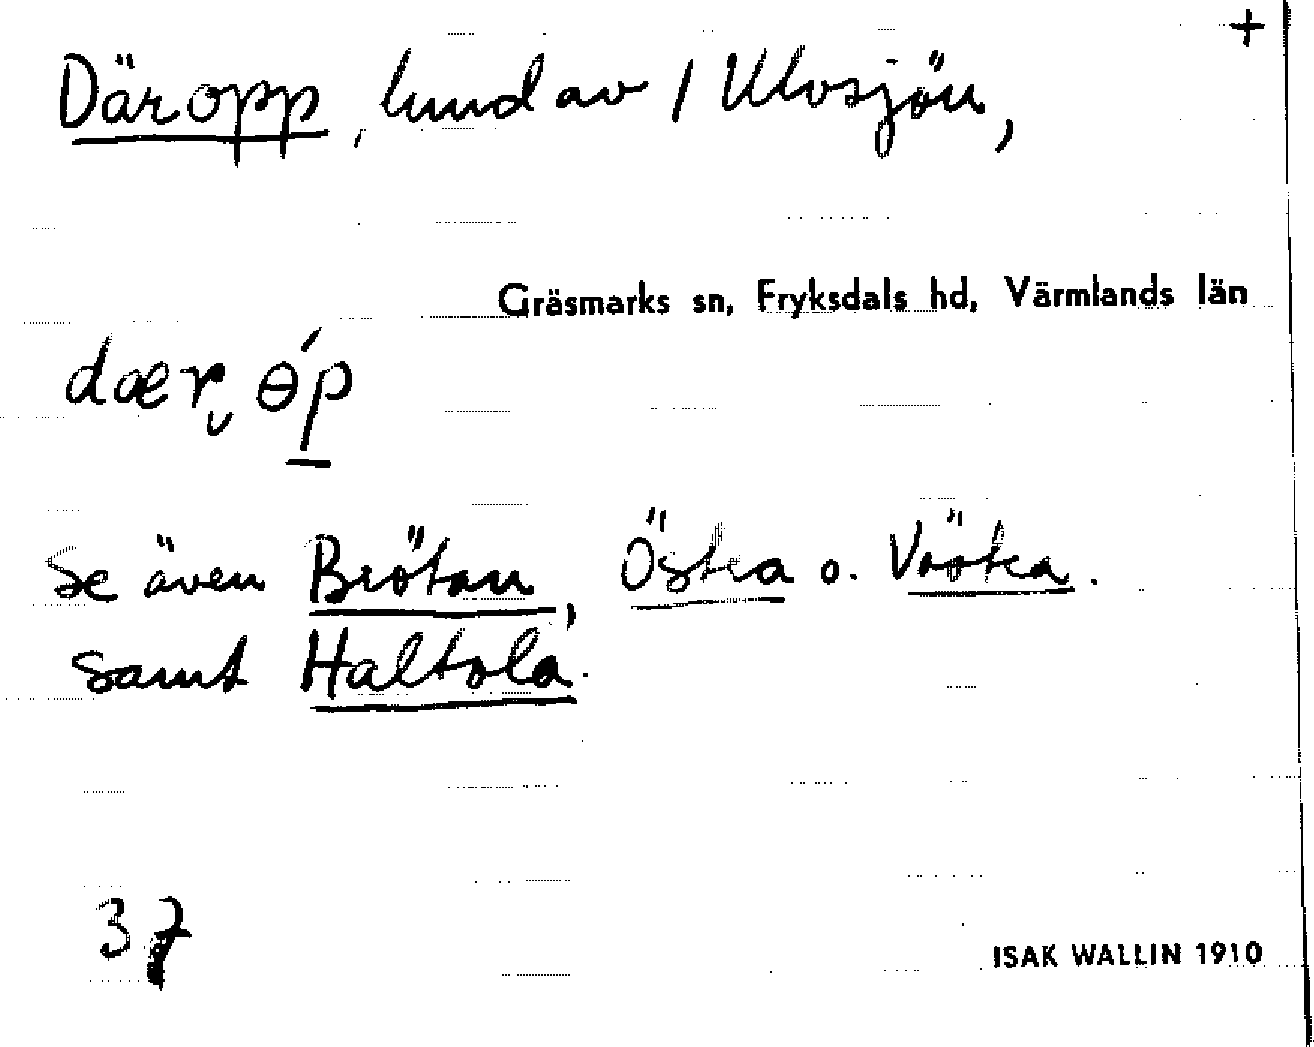 +
Däropp, hmd av / Ulvsjön,
Gräsmarks sn, Fryksdals hd, Värmlands län
dær øp
Se även Brötan, Östra o. Västra.
samt Haltola.
37
ISAK WALLIN 1910